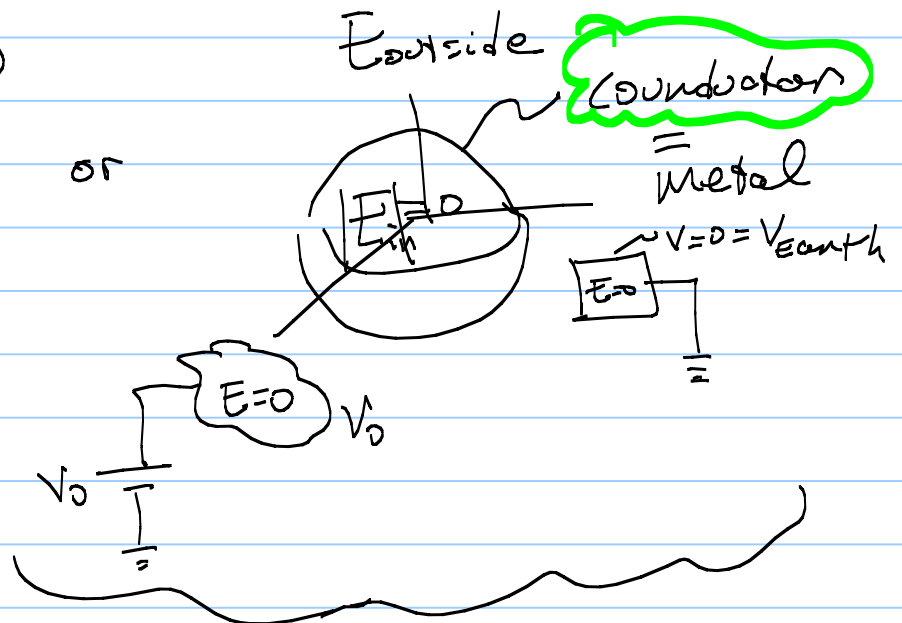 )
Eoutside
Counductor
=
or
metal
|E_in|=0
V=0=V_Earth
E=0
E=0
V_0
V_0